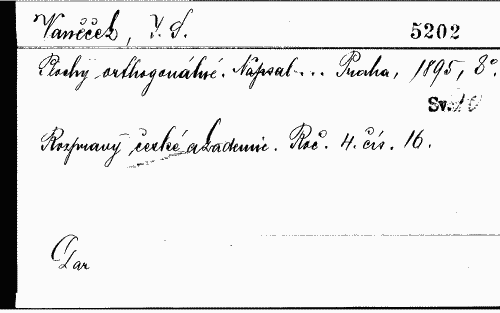 Vaněček, J. S. 5202
Plochy orthogonálné. Napsal... Praha, 1895, 8°.
Sv.
Rozpravy české akademie. Roč. 4. čís. 16.
Dar